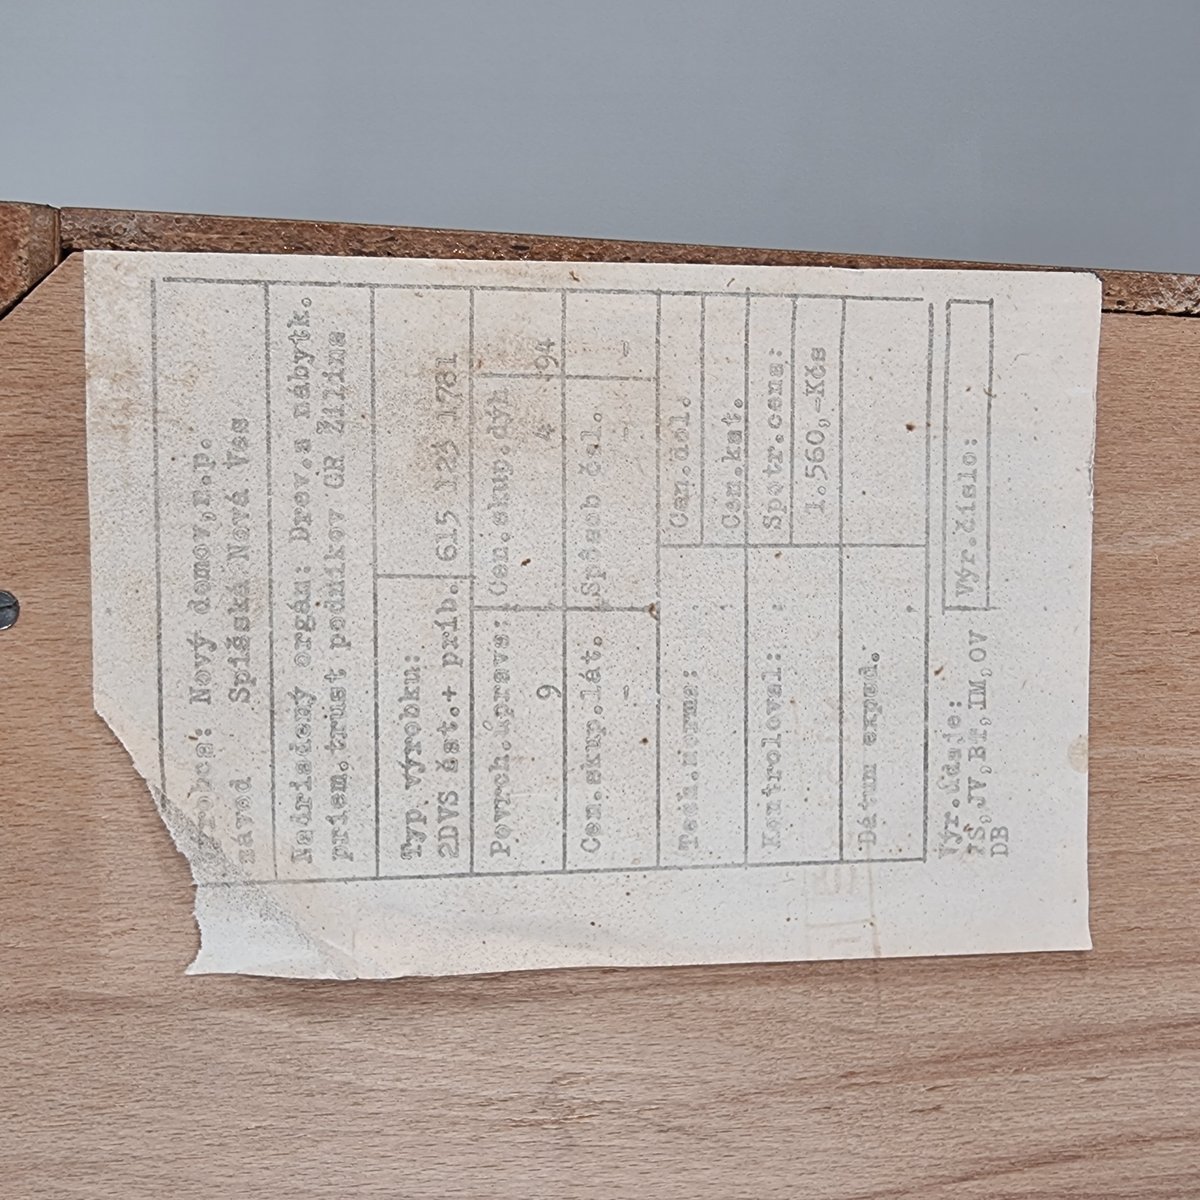 Výrobca: Nový domov,n.p.
závod Spišská Nová Ves
Nadriadený orgán: Drev.a nábytk.
priem.trust podnikov GR Žilina
Typ výrobku:
2DVS čst.+ príb. 615 123 1781
Povrch.úprava: Cen.skup.dýh
9 4 94
Cen.skup.lát. Spôsob čal.
- - -
Tech.norma: Cen.dol.
Cen.kat.
Kontroloval: Spotr.cena:
1.560,-Kčs
Dátum exped.
Výr.údaje: Výr.číslo:
ZS,JV,BT,IM,OV
DB